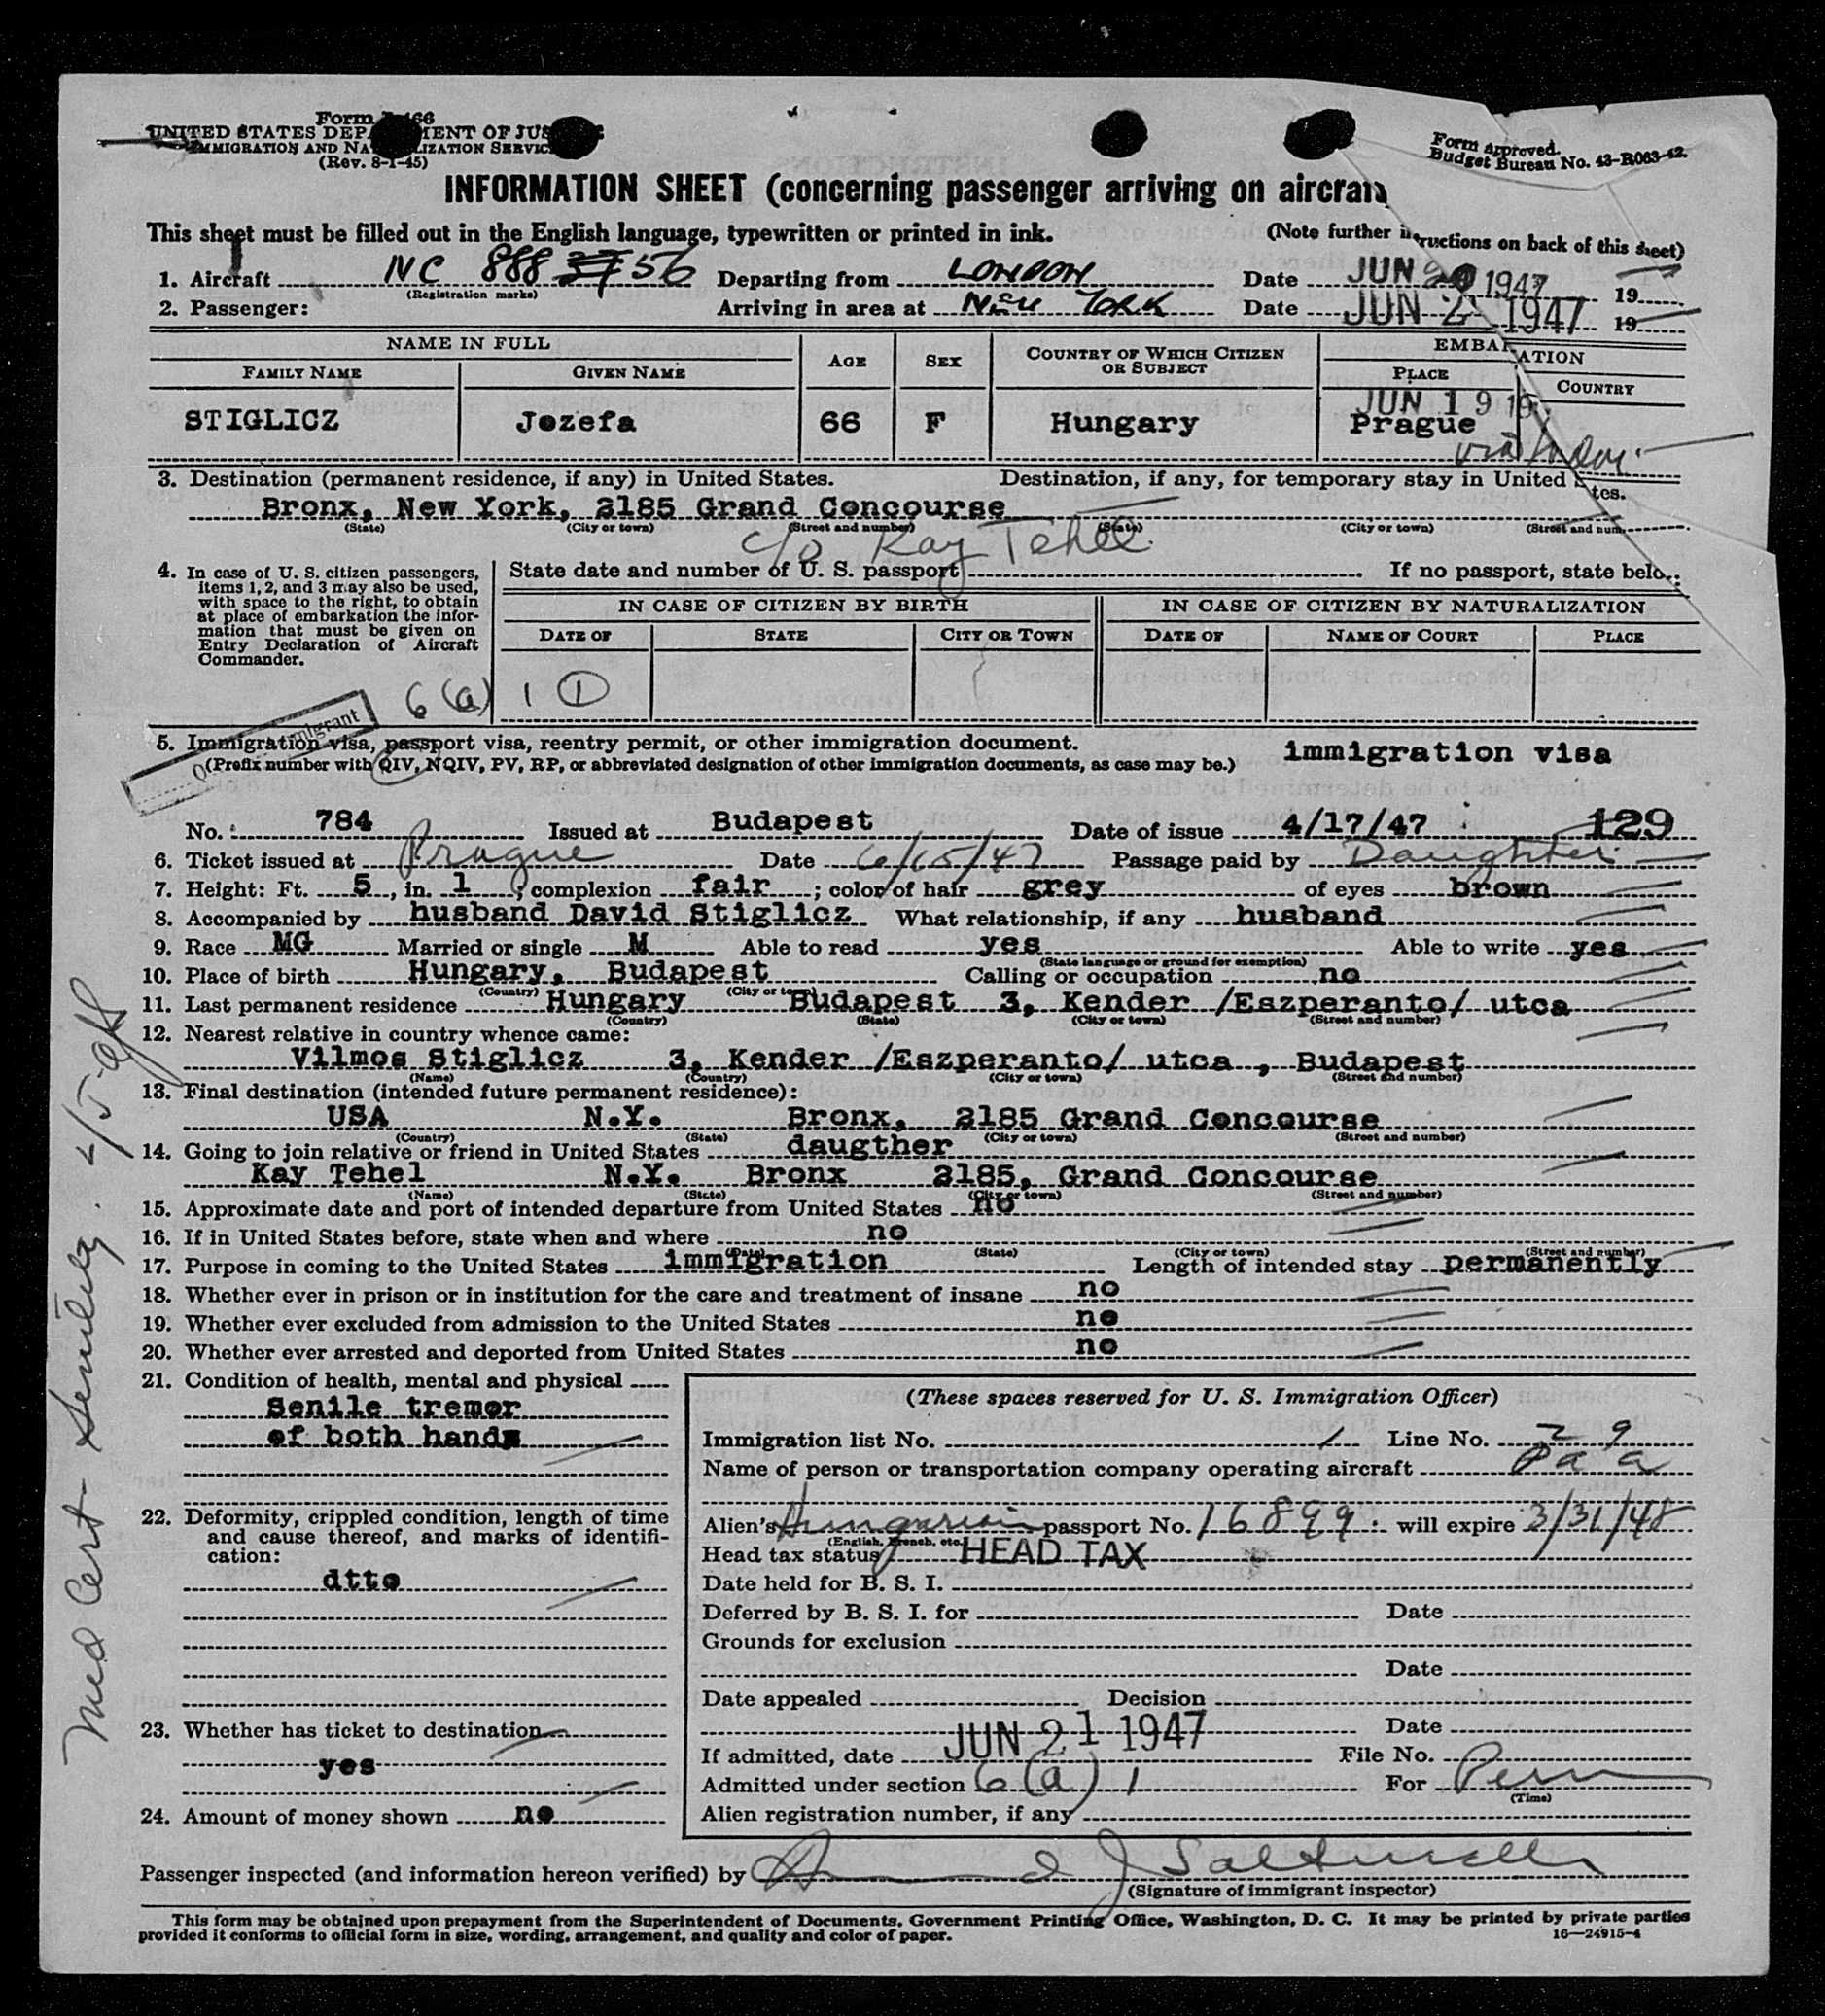 Form I-466
UNITED STATES DEPARTMENT OF JUSTICE
IMMIGRATION AND NATURALIZATION SERVICE
(Rev. 8-1-45)
Form approved.
Budget Bureau No. 43-R063-42.
INFORMATION SHEET (concerning passenger arriving on aircraft)
This sheet must be filled out in the English language, typewritten or printed in ink. (Note further instructions on back of this sheet)
1. Aircraft NC 888 56 Departing from LONDON Date JUN 20 1947 19
(Registration marks)
2. Passenger: Arriving in area at NEW YORK Date JUN 21 1947 19
NAME IN FULL AGE SEX COUNTRY OF WHICH CITIZEN OR SUBJECT EMBARKATION
FAMILY NAME GIVEN NAME PLACE COUNTRY
JUN 19 19
STIGLICZ Jozefa 66 F Hungary Prague
via London
3. Destination (permanent residence, if any) in United States. Destination, if any, for temporary stay in United States.
Bronx, New York, 2185 Grand Concourse
(State) (City or town) (Street and number) (State) (City or town) (Street and num
c/o Kay Tehel
4. In case of U. S. citizen passengers, items 1, 2, and 3 may also be used, with space to the right, to obtain at place of embarkation the information that must be given on Entry Declaration of Aircraft Commander.
State date and number of U. S. passport If no passport, state below:
IN CASE OF CITIZEN BY BIRTH IN CASE OF CITIZEN BY NATURALIZATION
DATE OF STATE CITY OR TOWN DATE OF NAME OF COURT PLACE
6 (a) 1 1
migrant
5. Immigration visa, passport visa, reentry permit, or other immigration document. immigration visa
(Prefix number with QIV, NQIV, PV, RP, or abbreviated designation of other immigration documents, as case may be.)
No. 784 Issued at Budapest Date of issue 4/17/47 129
6. Ticket issued at Prague Date 6/15/47 Passage paid by Daughter
7. Height: Ft. 5, in. 1; complexion fair; color of hair grey of eyes brown
8. Accompanied by husband David Stiglicz What relationship, if any husband
9. Race MG Married or single M Able to read yes Able to write yes
(State language or ground for exemption)
10. Place of birth Hungary, Budapest Calling or occupation no
(Country) (City or town)
11. Last permanent residence Hungary Budapest 3, Kender /Eszperanto/ utca
(Country) (State) (City or town) (Street and number)
12. Nearest relative in country whence came:
Vilmos Stiglicz 3, Kender /Eszperanto/ utca , Budapest
(Name) (Country) (City or town) (Street and number)
13. Final destination (intended future permanent residence):
USA N.Y. Bronx, 2185 Grand Concourse
(Country) (State) (City or town) (Street and number)
14. Going to join relative or friend in United States daugther
Kay Tehel N.Y. Bronx 2185, Grand Concourse
(Name) (State) (City or town) (Street and number)
15. Approximate date and port of intended departure from United States no
16. If in United States before, state when and where no
(Date) (State) (City or town) (Street and number)
17. Purpose in coming to the United States immigration Length of intended stay permanently
18. Whether ever in prison or in institution for the care and treatment of insane no
19. Whether ever excluded from admission to the United States no
20. Whether ever arrested and deported from United States no
21. Condition of health, mental and physical
Senile tremor
of both hands
22. Deformity, crippled condition, length of time and cause thereof, and marks of identification:
dtto
23. Whether has ticket to destination
yes
24. Amount of money shown no
(These spaces reserved for U. S. Immigration Officer)
Immigration list No. 1 Line No. 29
Name of person or transportation company operating aircraft Paa
Alien's Hungarian passport No. 16899. will expire 3/31/48
(English, French, etc.)
Head tax status HEAD TAX
Date held for B. S. I.
Deferred by B. S. I. for Date
Grounds for exclusion
Date
Date appealed Decision
Date
If admitted, date JUN 21 1947 File No.
Admitted under section 6 (a) 1 For Perm
(Time)
Alien registration number, if any
Passenger inspected (and information hereon verified) by
(Signature of immigrant inspector)
This form may be obtained upon prepayment from the Superintendent of Documents, Government Printing Office, Washington, D. C. It may be printed by private parties
provided it conforms to official form in size, wording, arrangement, and quality and color of paper. 16—24915-4
Med Cert Senility.